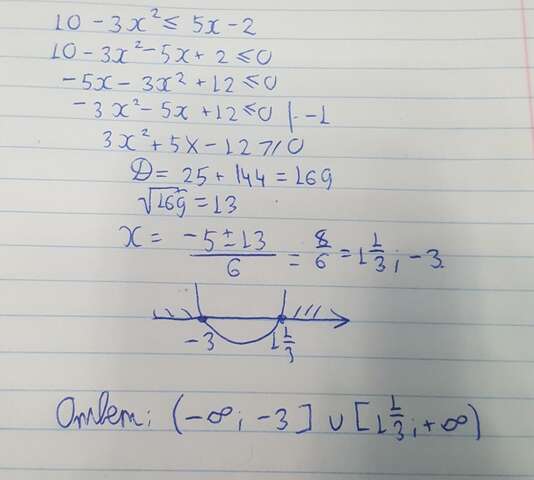 10 - 3x² ≤ 5x - 2
10 - 3x² - 5x + 2 ≤ 0
-5x - 3x² + 12 ≤ 0
-3x² - 5x + 12 ≤ 0 | · -1
3x² + 5x - 12 ≥ 0
D = 25 + 144 = 169
√169 = 13
x = (-5 ± 13)/6 = 8/6 = 1 1/3; -3
-3 1 1/3
Ответ: (-∞; -3] ∪ [1 1/3; +∞)